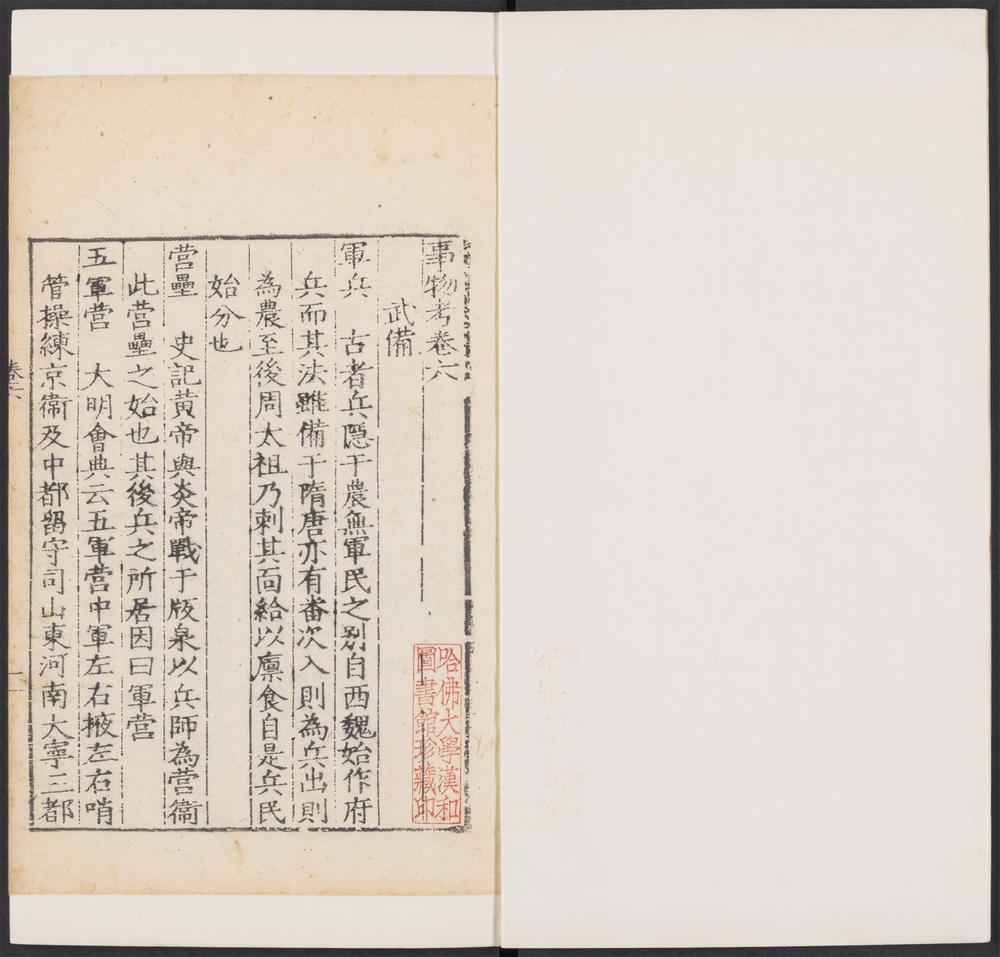 事物考卷六
武備
軍兵　古者兵隱于農無軍民之别自西魏始作府
兵而其法雖備于隋唐亦有番次入則為兵出則
為農至後周太祖乃刺其面給以廪食自是兵民
始分也
营壘　史記黄帝與炎帝戰于版泉以兵師為营衞
此营壘之始也其後兵之所居因曰軍营
五軍营　大明會典云五軍营中軍左右掖左右哨
管操練京衞及中都留守司山東河南大寧三都
卷六
一
哈佛大學漢和
圖書館珍藏印